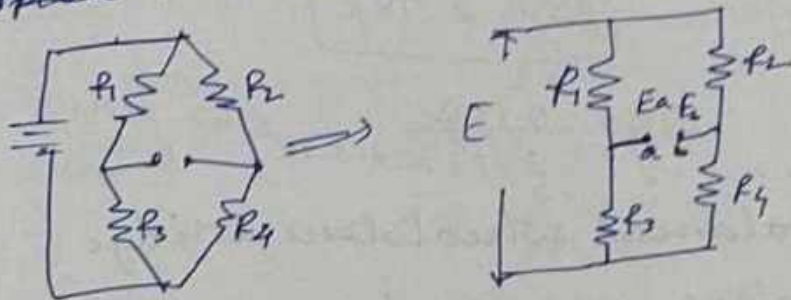 R1 R2
R3 R4
E R1 Ea Eb R2
a b
R3 R4